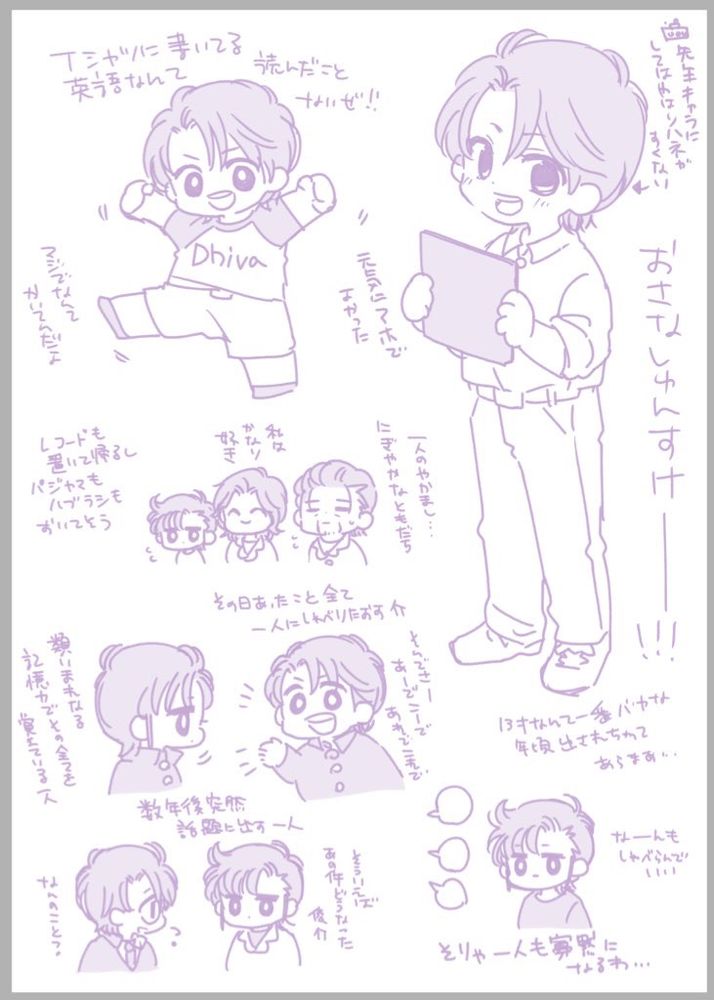 Tシャツに書いてる
英語なんて
読んだこと
ないぜ!!
先生キャラに
してはやはりハネが
すくない
Dhiva
マジでなんて
かいてんだよ
元気にアホで
よかった
おさなしゅんすけー!!!
レコードも
置いて帰るし
パジャマも
ハブラシも
おいてそう
私は
かなり
好き
一人のやかまし…
にぎやかなともだち
その日あったこと全て
一人にしゃべりたおす介
類いまれなる
記憶力でその全てを
覚えている一人
そんでさー
あーでこーで
あれでこれで
13才なんて一番バカな
年頃出されちゃって
あらまあ…
数年後突然
話題に出す一人
なんのことっ?
そういえば
あの件どうなった
俊介
なーんも
しゃべらんで
いい
そりゃ一人も寡黙に
なるわ…